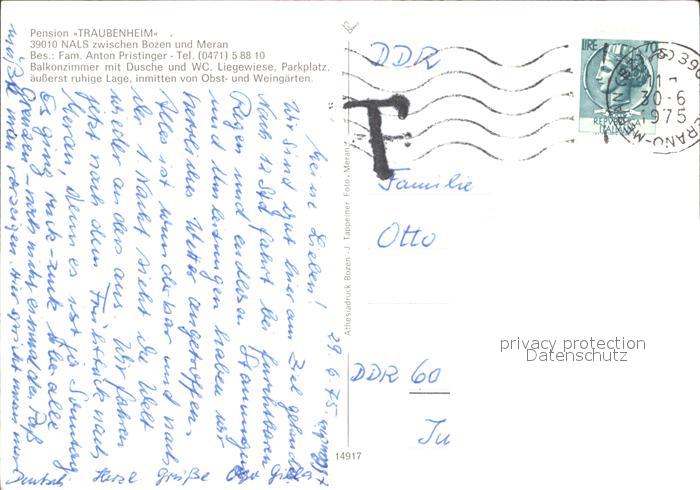 Pension «TRAUBENHEIM»
39010 NALS zwischen Bozen und Meran
Bes.: Fam. Anton Pristinger - Tel. (0471) 5 88 10
Balkonzimmer mit Dusche und WC. Liegewiese, Parkplatz,
äußerst ruhige Lage, inmitten von Obst- und Weingärten.
29.6.75
Meine Lieben!
Wir sind gut hier am Ziel gelandet
Nach 12 Std Fahrt bei furchtbarem
Regen und endlosen Stauungen
und Umleitungen haben wir
herrliches Wetter angetroffen.
Alles ist wunderbar und nach
der 1 Nacht sieht die Welt
wieder anders aus. Wir fahren
jetzt nach dem Frühstück nach
Meran, denn es ist ja Sonntag
Es ging ruck-zuck über alle
Grenzen – nicht einmal den Paß
mußte man vorzeigen. Hier spricht man nur
Deutsch. Herzl. Grüße
Athesiadruck Bozen - J. Tappeiner Foto - Meran
14917
DDR
T
LIRE 70
REPUBBLICA
ITALIANA
30-6
1975
MERANO-MERAN
Familie
Otto
DDR 60
privacy protection
Datenschutz